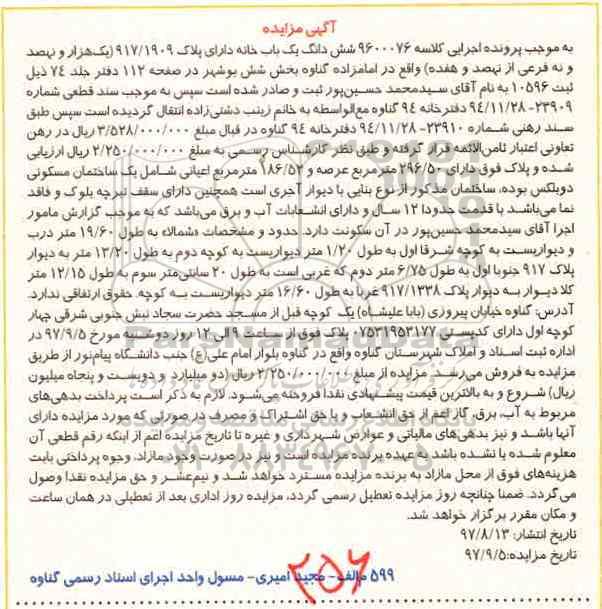 آگهی مزایده
به موجب پرونده اجرایی کلاسه ۹۶۰۰۰۷۶ شش دانگ یک باب خانه دارای پلاک ۹۱۷/۱۹۰۹ (یکهزار و نهصد
و نه فرعی از نهصد و هفده) واقع در امامزاده گناوه بخش شش بوشهر در صفحه ۱۱۲ دفتر جلد ۷۴ ذیل
ثبت ۱۰۵۹۶ به نام آقای سیدمحمد حسین‌پور ثبت و صادر شده است سپس به موجب سند قطعی شماره
۲۳۹۰۹-۹۴/۱۱/۲۸ دفترخانه ۹۴ گناوه مع‌الواسطه به خانم زینب دشتی‌زاده انتقال گردیده است سپس طبق
سند رهنی شماره ۲۳۹۱۰-۹۴/۱۱/۲۸ دفترخانه ۹۴ گناوه در قبال مبلغ ۳/۵۲۸/۰۰۰/۰۰۰ ریال در رهن
تعاونی اعتبار ثامن‌الائمه قرار گرفته و طبق نظر کارشناس رسمی به مبلغ ۲/۲۵۰/۰۰۰/۰۰۰ ریال ارزیابی
شده و پلاک فوق دارای ۲۹۶/۵۰ مترمربع عرصه و ۱۸۶/۵۲ مترمربع اعیانی شامل یک ساختمان مسکونی
دوبلکس بوده، ساختمان مذکور از نوع بنایی با دیوار آجری است همچنین دارای سقف تیرچه بلوک و فاقد
نما می‌باشد با قدمت حدودا ۱۲ سال و دارای انشعابات آب و برق می‌باشد که به موجب گزارش مامور
اجرا آقای سیدمحمد حسین‌پور در آن سکونت دارد. حدود و مشخصات «شمالا» به طول ۱۹/۶۰ متر درب
و دیواریست به کوچه شرقا اول به طول ۱/۲۰ متر دیواریست به کوچه دوم به طول ۱۳/۲۰ متر به دیوار
پلاک ۹۱۷ جنوبا اول به طول ۶/۷۵ متر دوم که غربی است به طول ۲۰ سانتی‌متر سوم به طول ۱۲/۱۵ متر
کلا دیوار به دیوار پلاک ۹۱۷/۱۳۳۸ غربا به طول ۱۶/۶۰ متر دیواریست به کوچه. حقوق ارتفاقی ندارد.
آدرس: گناوه خیابان پیروزی (بابا علیشاه) یک کوچه قبل از مسجد حضرت سجاد نبش جنوبی شرقی چهار
کوچه اول دارای کدپستی ۰۷۵۳۱۹۵۳۱۷۷ پلاک فوق از ساعت ۹ الی ۱۲ روز دوشنبه مورخ ۹۷/۹/۵ در
اداره ثبت اسناد و املاک شهرستان گناوه واقع در گناوه بلوار امام علی(ع) جنب دانشگاه پیام‌نور از طریق
مزایده به فروش می‌رسد. مزایده از مبلغ ۲/۲۵۰/۰۰۰/۰۰۰ ریال (دو میلیارد و دویست و پنجاه میلیون
ریال) شروع و به بالاترین قیمت پیشنهادی نقدا فروخته می‌شود. لازم به ذکر است پرداخت بدهی‌های
مربوط به آب، برق، گاز اعم از حق انشعاب و یا حق اشتراک و مصرف در صورتی که مورد مزایده دارای
آنها باشد و نیز بدهی‌های مالیاتی و عوارض شهرداری و غیره تا تاریخ مزایده اعم از اینکه رقم قطعی آن
معلوم شده یا نشده باشد به عهده برنده مزایده است و نیز در صورت وجود مازاد، وجوه پرداختی بابت
هزینه‌های فوق از محل مازاد به برنده مزایده مسترد خواهد شد و نیم‌عشر و حق مزایده نقدا وصول
می‌گردد. ضمنا چنانچه روز مزایده تعطیل رسمی گردد، مزایده روز اداری بعد از تعطیلی در همان ساعت
و مکان مقرر برگزار خواهد شد.
تاریخ انتشار: ۹۷/۸/۱۳
تاریخ مزایده:۹۷/۹/۵
۵۹۹ م/الف- مجید امیری- مسول واحد اجرای اسناد رسمی گناوه
۲۵۶